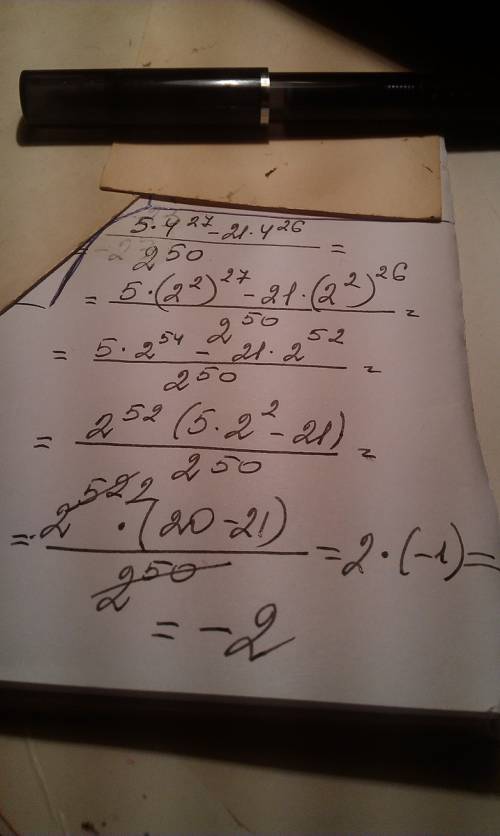 5·4^27-21·4^26 / 2^50 =
= 5·(2^2)^27-21·(2^2)^26 / 2^50 =
= 5·2^54-21·2^52 / 2^50 =
= 2^52(5·2^2-21) / 2^50 =
= 2^52 2·(20-21) / 2^50 = 2·(-1)=
= -2